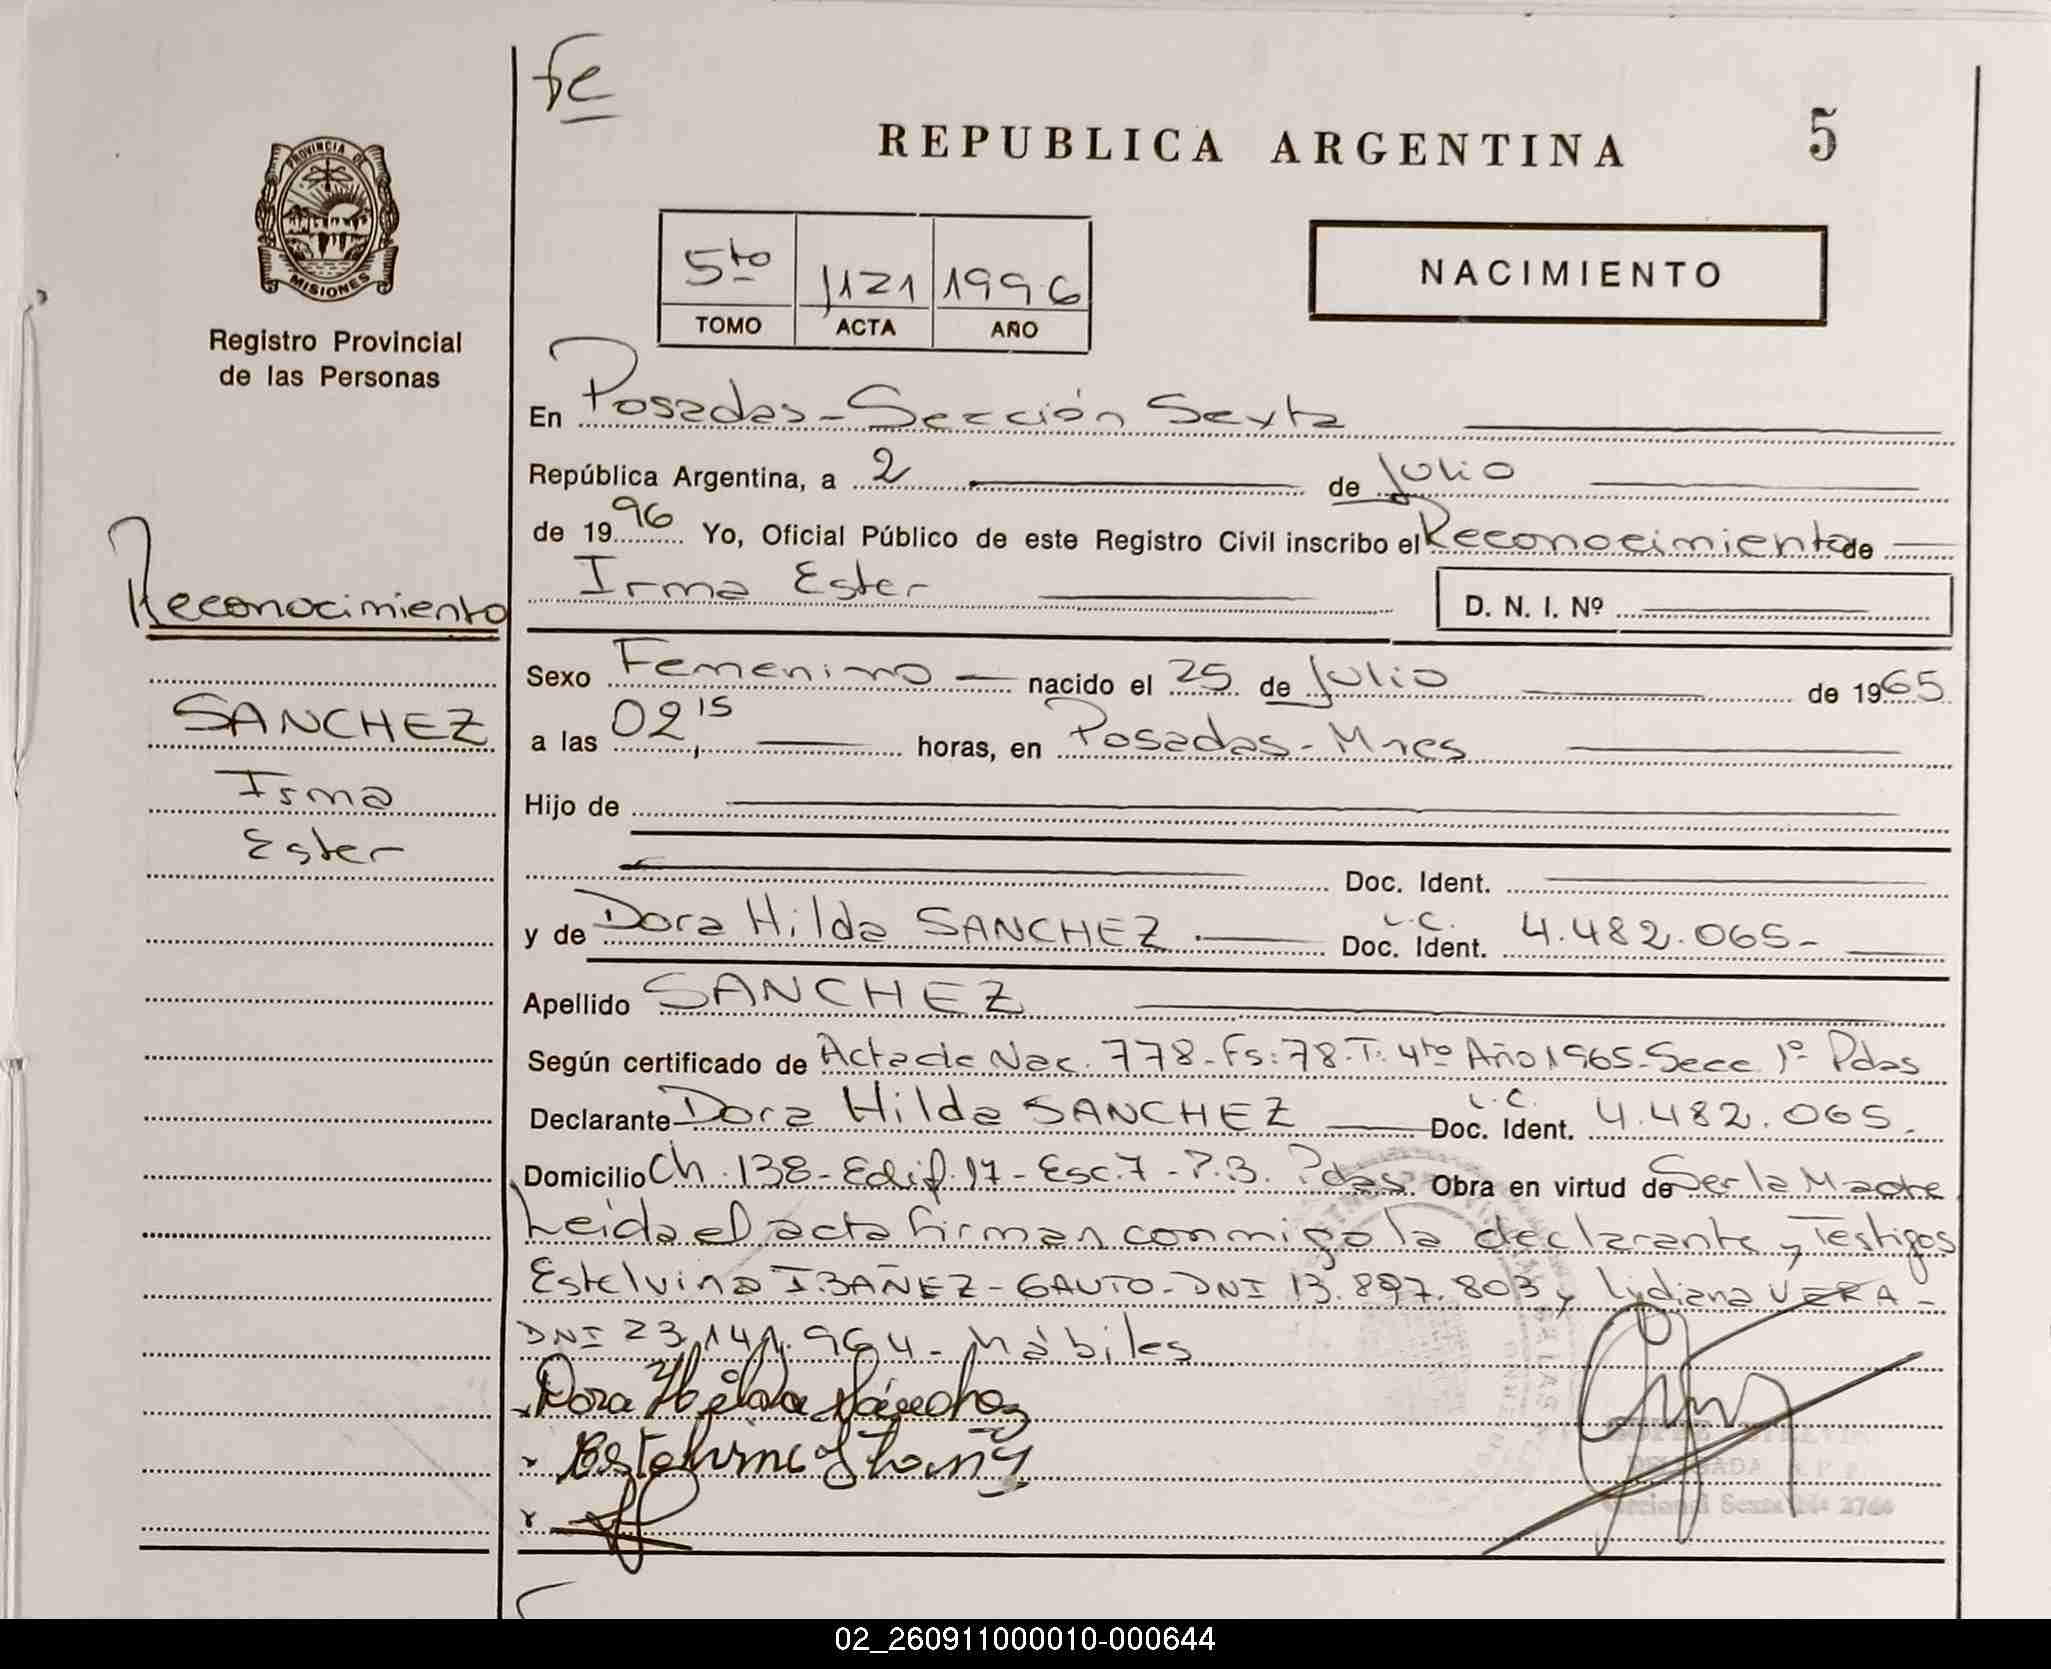 fe
REPUBLICA ARGENTINA
5
PROVINCIA DE
MISIONES
Registro Provincial
de las Personas
5to 1121 1996
TOMO ACTA AÑO
NACIMIENTO
En Posadas - Sección Sexta
República Argentina, a 2 de Julio
de 1996 Yo, Oficial Público de este Registro Civil inscribo el Reconocimiento de
Irma Ester D. N. I. Nº
Reconocimiento
SANCHEZ
Irma
Ester
Sexo Femenino nacido el 25 de Julio de 1965
a las 02,15 horas, en Posadas - Mnes
Hijo de
Doc. Ident.
y de Dora Hilda SANCHEZ Doc. Ident. L.C. 4.482.065-
Apellido SANCHEZ
Según certificado de Acta de Nac. 778 - Fs: 78 - T: 4to Año 1965 - Secc. 1º Pdas
Declarante Dora Hilda SANCHEZ Doc. Ident. L.C. 4.482.065.
Domicilio Ch. 138 - Edif. 17 - Esc. 7 - P.B. Pdas Obra en virtud de Ser la Madre
Leida el acta firman conmigo la declarante y Testigos
Estelvina IBAÑEZ - GAUTO - DNI 13.897.803 y Lidiana VERA -
DNI 23.141.964 - Hábiles
Dora Hilda Sánchez
DELEGADA R.P.P.
Seccional Sexta
02_260911000010-000644